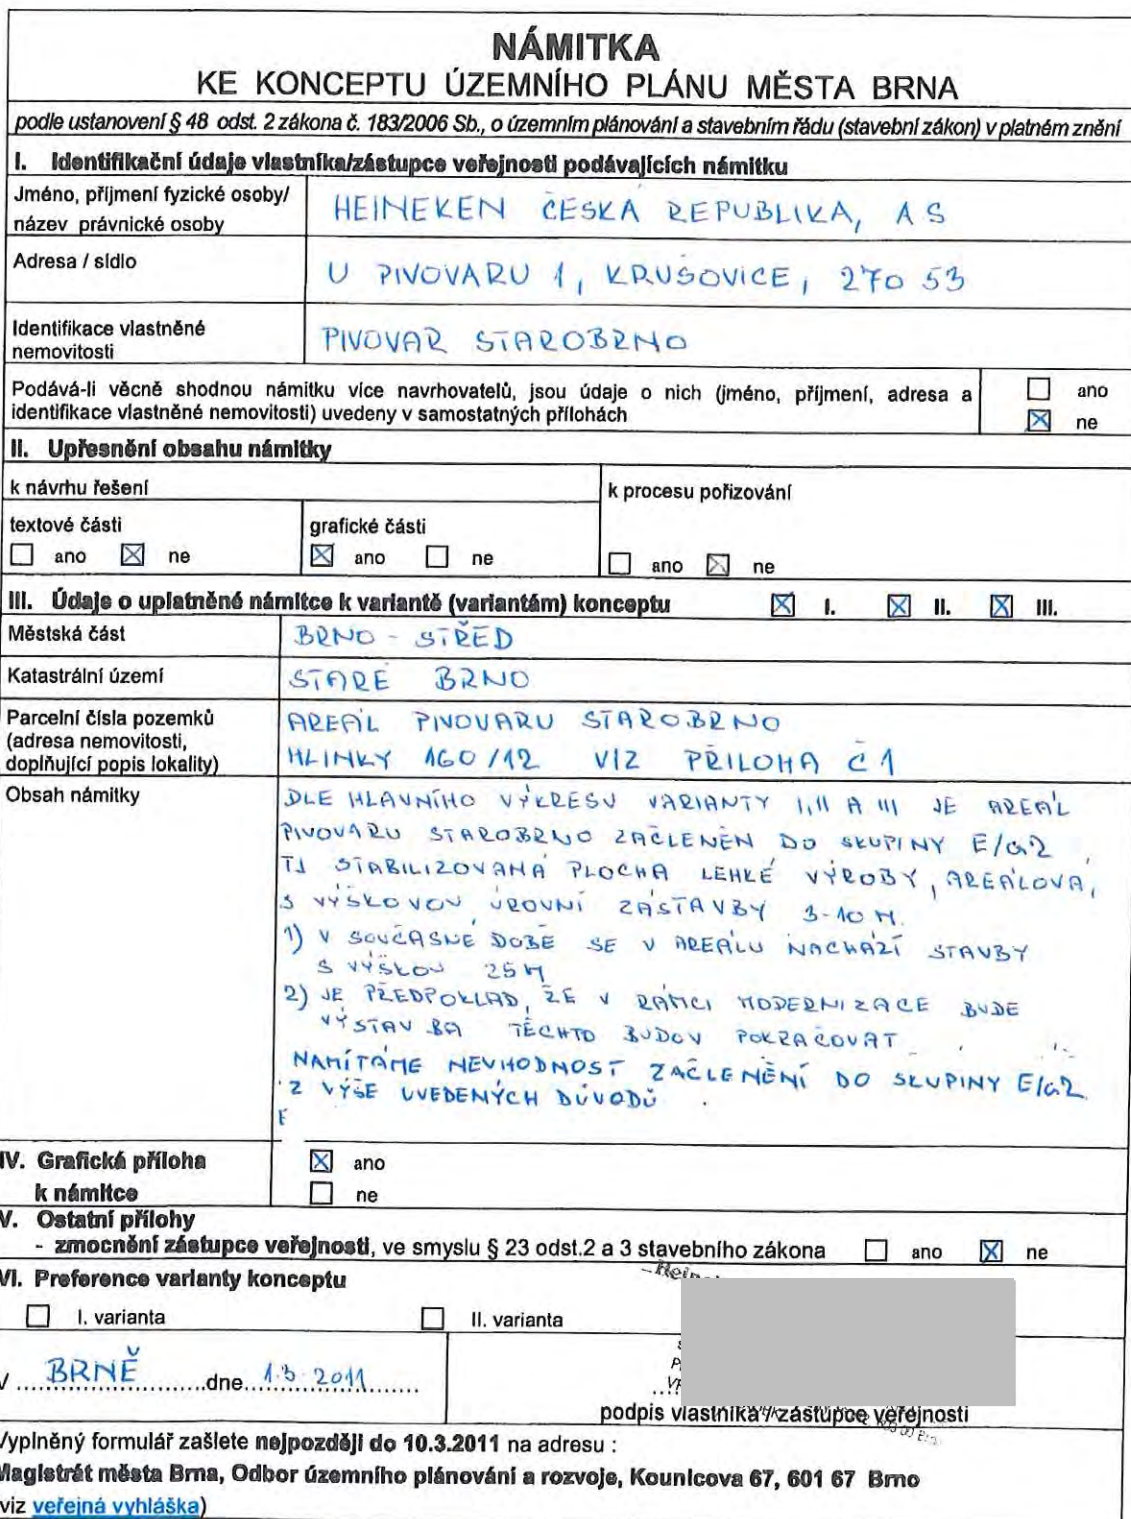 NÁMITKA
KE KONCEPTU ÚZEMNÍHO PLÁNU MĚSTA BRNA
podle ustanovení § 48 odst. 2 zákona č. 183/2006 Sb., o územním plánování a stavebním řádu (stavební zákon) v platném znění
I. Identifikační údaje vlastníka/zástupce veřejnosti podávajících námitku
Jméno, příjmení fyzické osoby/
název právnické osoby
HEINEKEN ČESKÁ REPUBLIKA, AS
Adresa / sídlo
U PIVOVARU 1, KRUŠOVICE, 270 53
Identifikace vlastněné
nemovitosti
PIVOVAR STAROBRNO
Podává-li věcně shodnou námitku více navrhovatelů, jsou údaje o nich (jméno, příjmení, adresa a
identifikace vlastněné nemovitosti) uvedeny v samostatných přílohách
ano
ne
II. Upřesnění obsahu námitky
k návrhu řešení
k procesu pořizování
textové části
grafické části
ano ne ano ne ano ne
III. Údaje o uplatněné námitce k variantě (variantám) konceptu I. II. III.
Městská část
BRNO - STŘED
Katastrální území
STARÉ BRNO
Parcelní čísla pozemků
(adresa nemovitosti,
doplňující popis lokality)
AREÁL PIVOVARU STAROBRNO
HLINKY 160/12 VIZ PŘÍLOHA Č 1
Obsah námitky
DLE HLAVNÍHO VÝKRESU VARIANTY I, II A III JE AREÁL
PIVOVARU STAROBRNO ZAČLENĚN DO SKUPINY E/a2,
TJ STABILIZOVANÁ PLOCHA LEHKÉ VÝROBY, AREÁLOVÁ,
S VÝŠKOVOU ÚROVNÍ ZÁSTAVBY 3-10 M.
1) V SOUČASNÉ DOBĚ SE V AREÁLU NACHÁZÍ STAVBY
S VÝŠKOU 25 M
2) JE PŘEDPOKLAD, ŽE V RÁMCI MODERNIZACE BUDE
VÝSTAVBA TĚCHTO BUDOV POKRAČOVAT
NAMÍTÁME NEVHODNOST ZAČLENĚNÍ DO SKUPINY E/a2
Z VÝŠE UVEDENÝCH DŮVODŮ.
IV. Grafická příloha
k námitce
ano
ne
V. Ostatní přílohy
- zmocnění zástupce veřejnosti, ve smyslu § 23 odst.2 a 3 stavebního zákona ano ne
VI. Preference varianty konceptu
I. varianta II. varianta
V BRNĚ dne 1.3.2011
podpis vlastníka / zástupce veřejnosti
Vyplněný formulář zašlete nejpozději do 10.3.2011 na adresu :
Magistrát města Brna, Odbor územního plánování a rozvoje, Kounicova 67, 601 67 Brno
(viz veřejná vyhláška)